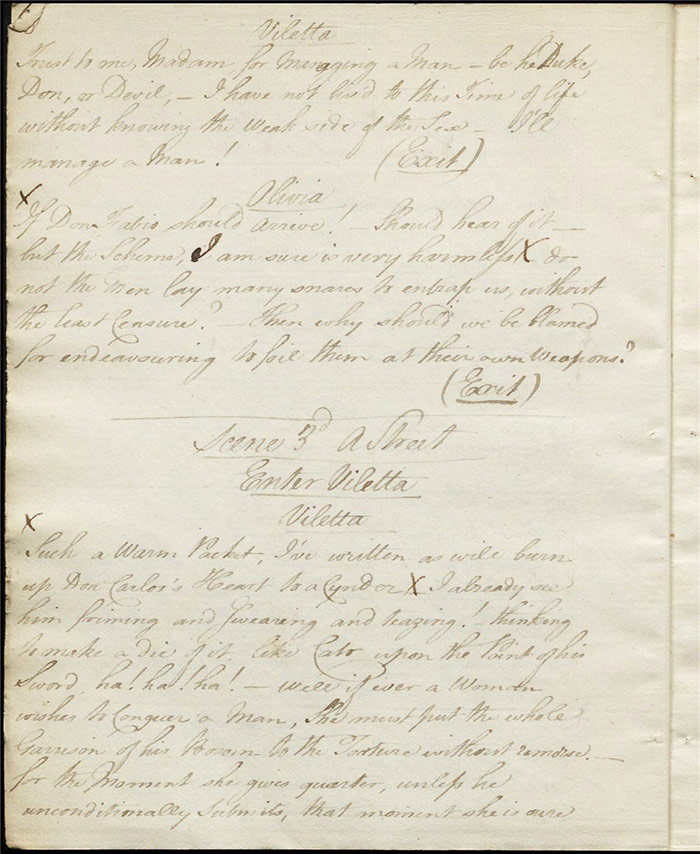 Viletta
Trust to me, Madam, for Managing a Man – be he Duke,
Don, or Devil, – I have not liv'd to this Time of life
without knowing the weak side of the Sex – I'll
manage a Man! (Exit)
X
Olivia
If Don Fabio should arrive! – Should hear of it –
but the Scheme, I am sure is very harmless X do
not the men lay many snares to entrap us, without
the least Censure? – Then why should we be blamed
for endeavouring to foil them at their own Weapons?
(Exit)
Scene 3d A Street
Enter Viletta
Viletta
X
Such a Warm Packet, I've written as will burn
up Don Carlos's Heart to a Cynder X I already see
him foiming and swearing and teazing! – thinking
to make a die of it, like Cato upon the Point of his
Sword, ha! ha! ha! – well if ever a Woman
wishes to Conquer a Man, She must put the whole
Garrison of his Bosom to the Torture without remorse. –
for the Moment she gives quarter, unless he
unconditionally Submits, that moment she is sure